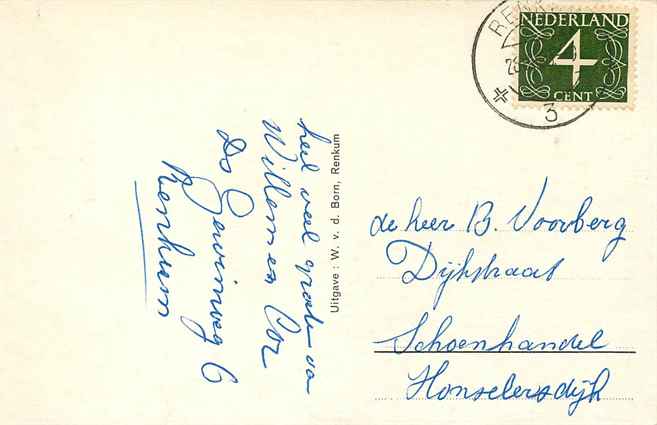 heel veel groeten va
Willem en Cor
Ds 6
Renkum
Uitgave : W. v. d. Born, Renkum
NEDERLAND
4
CENT
3
de heer B. Voorberg
Dijkstraat
Schoenhandel
Honselersdijk